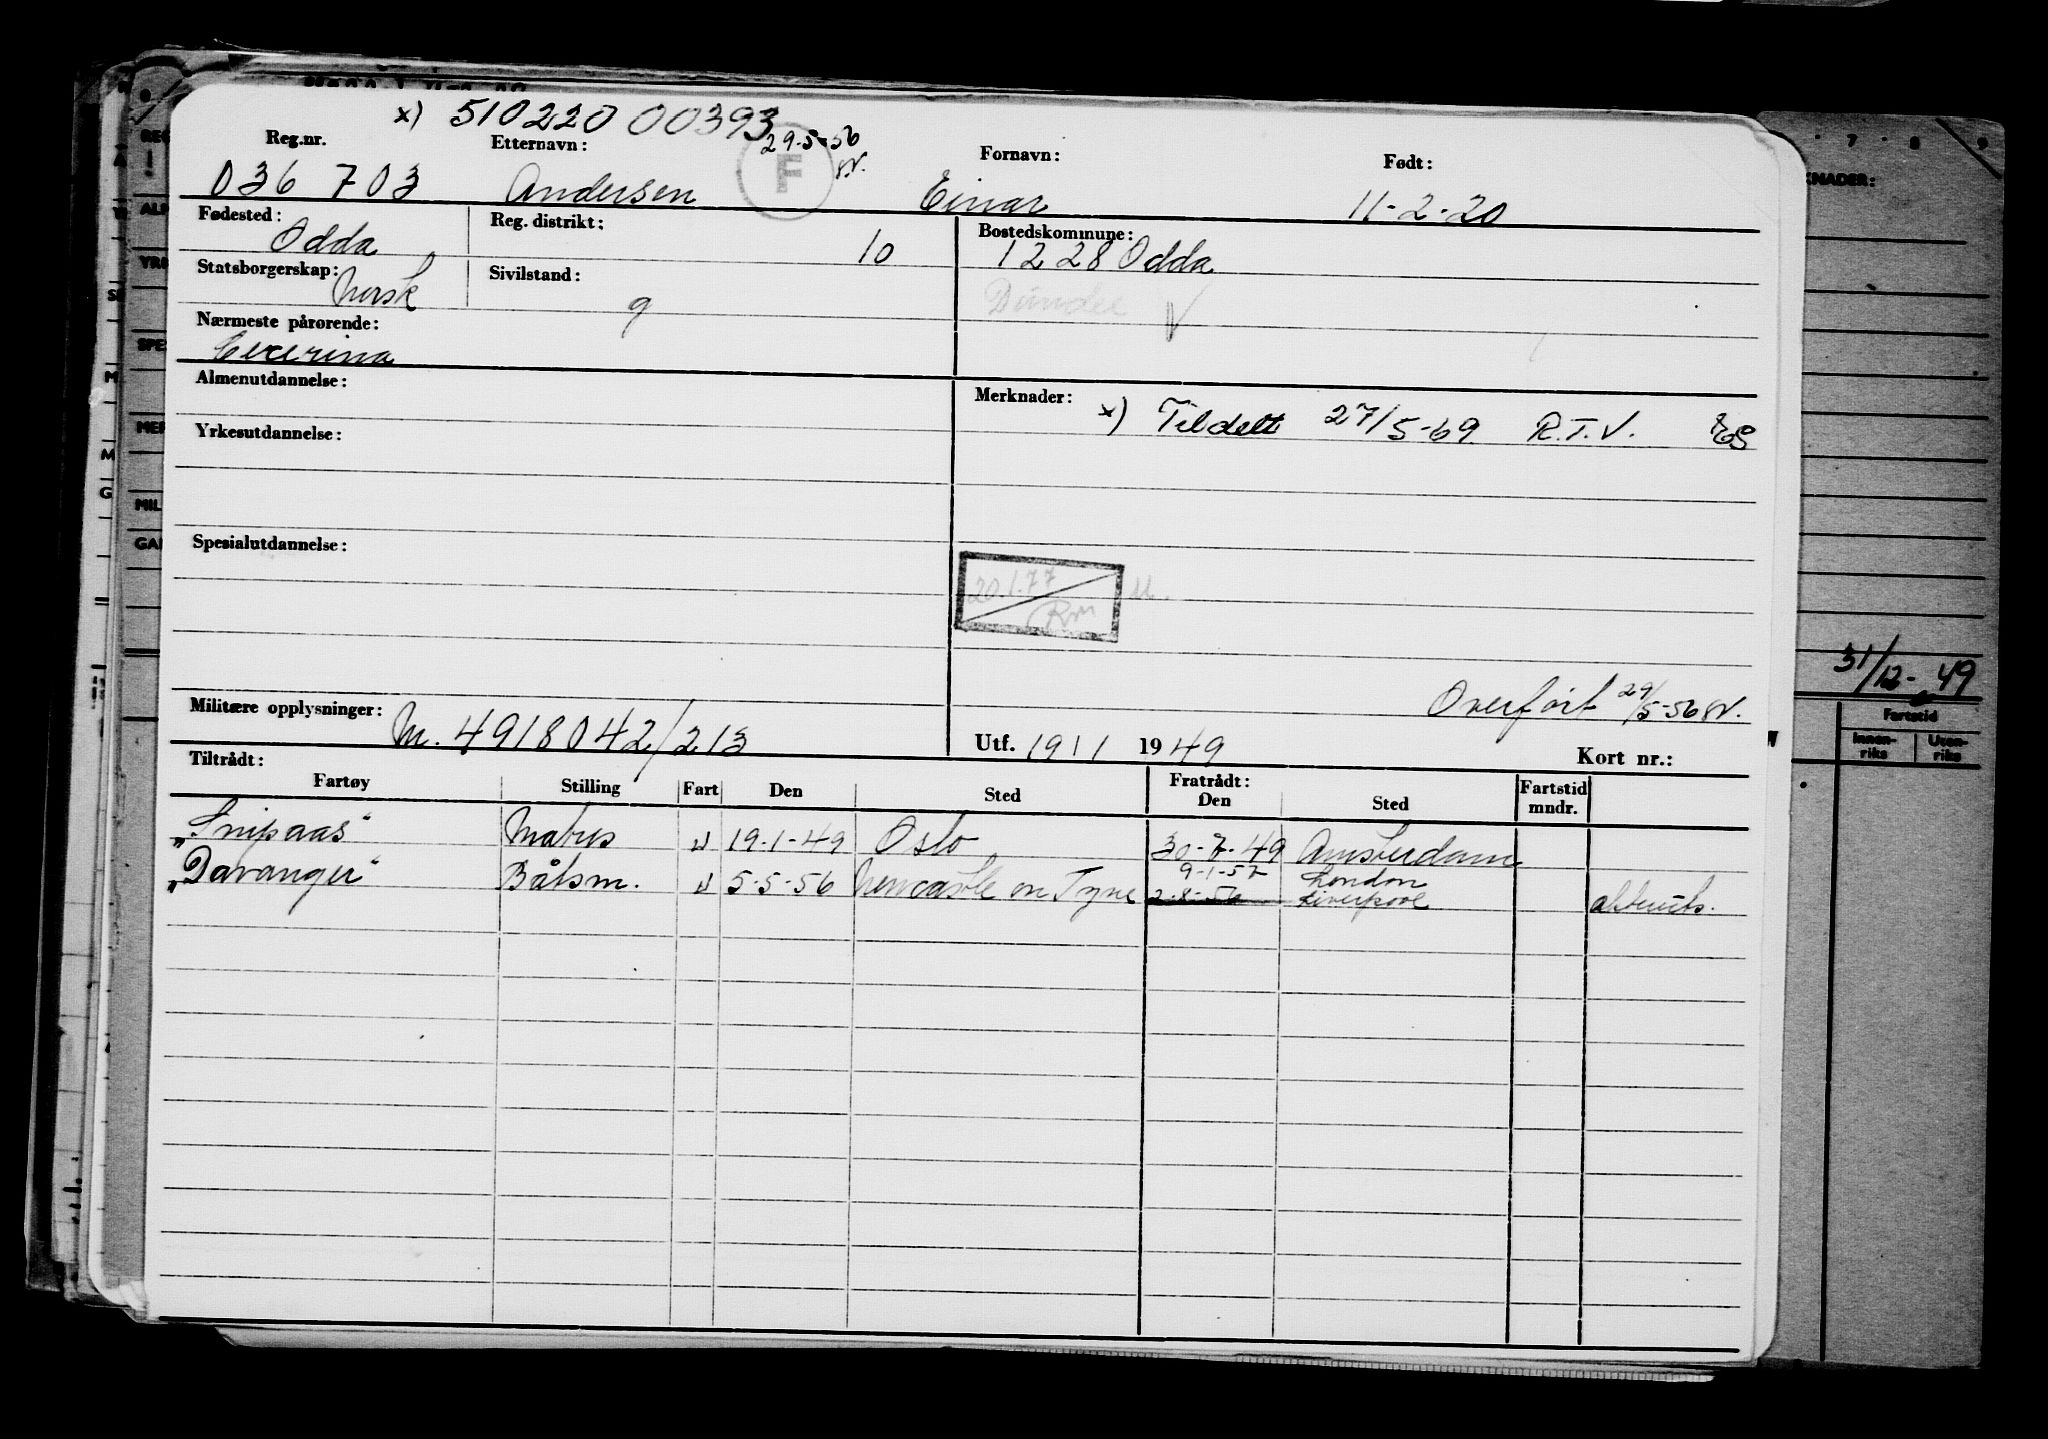 x) 510220 00393
29-5-56
Reg.nr. Etternavn: F Fornavn: Født:
036 703 Andersen Einar 11-2-20
Fødested: Odda Reg. distrikt: 10 Bostedskommune: 1228 Odda
Statsborgerskap: Norsk Sivilstand: g Dundee V
Nærmeste pårørende:
Almenutdannelse: Merknader: x) Tildelt 27/5-69 R.T.V.
Yrkesutdannelse:
Spesialutdannelse:
20.1.77
Rm
Overført 29/5-56
Militære opplysninger: M. 4918042/213 Utf. 19/1 1949 Kort nr.:
Tiltrådt: Fratrådt:
Fartøy Stilling Fart Den Sted Den Sted Fartstid mndr.
"Snipaas" Matros U 19-1-49 Oslo 30-7-49 Amsterdam
9-1-57 London
"Davanger" Båtsm. U 5-5-56 Newcastle on Tyne 2-8-56 Liverpool
31/12-49
Fartstid
Innen-riks Uten-riks